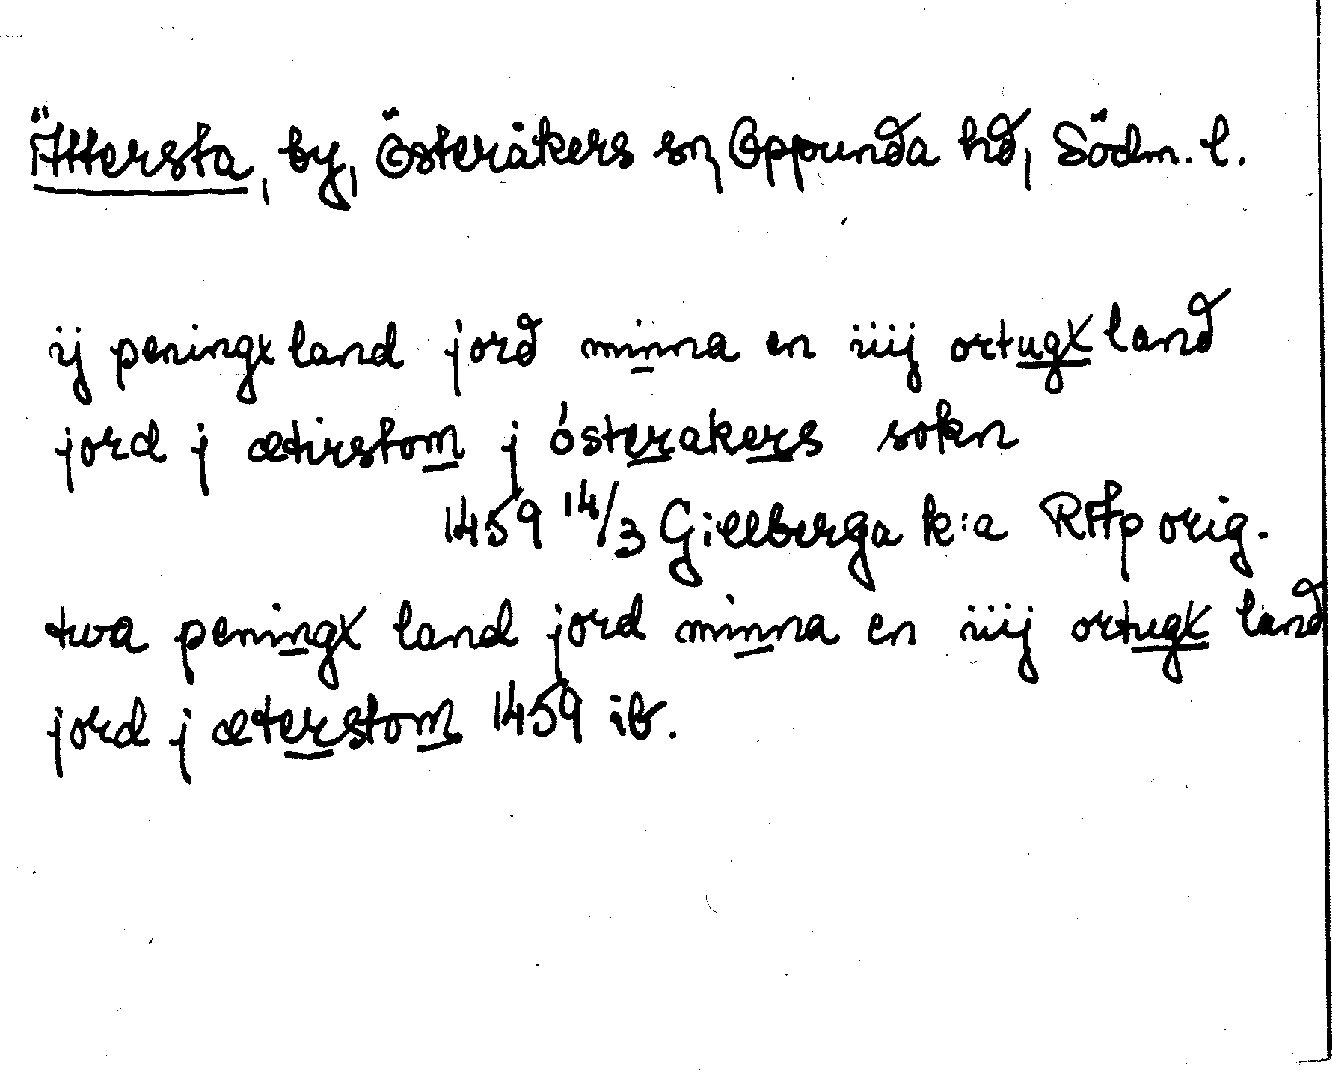 Ättersta, by, Österåkers sn, Oppunda hd, Södm. l.
ij peningx land jord minna en iiij ortugx land
jord j ætirstom j ósterakers sokn
1459 14/3 Gillberga k:a RAp orig.
twa peningx land jord minna en iiij ortugx land
jord j æterstom 1459 ib.